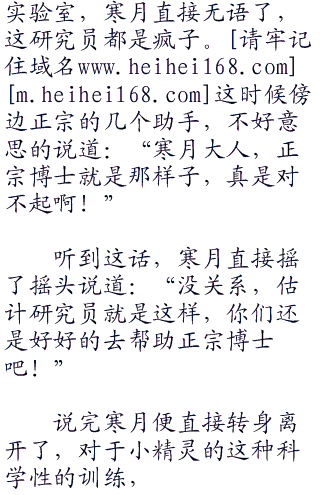 实验室，寒月直接无语了，
这研究员都是疯子。[请牢记
住域名www.heihei168.com]
[m.heihei168.com]这时候傍
边正宗的几个助手，不好意
思的说道：“寒月大人，正
宗博士就是那样子，真是对
不起啊！”
听到这话，寒月直接摇
了摇头说道：“没关系，估
计研究员就是这样，你们还
是好好的去帮助正宗博士
吧！”
说完寒月便直接转身离
开了，对于小精灵的这种科
学性的训练，